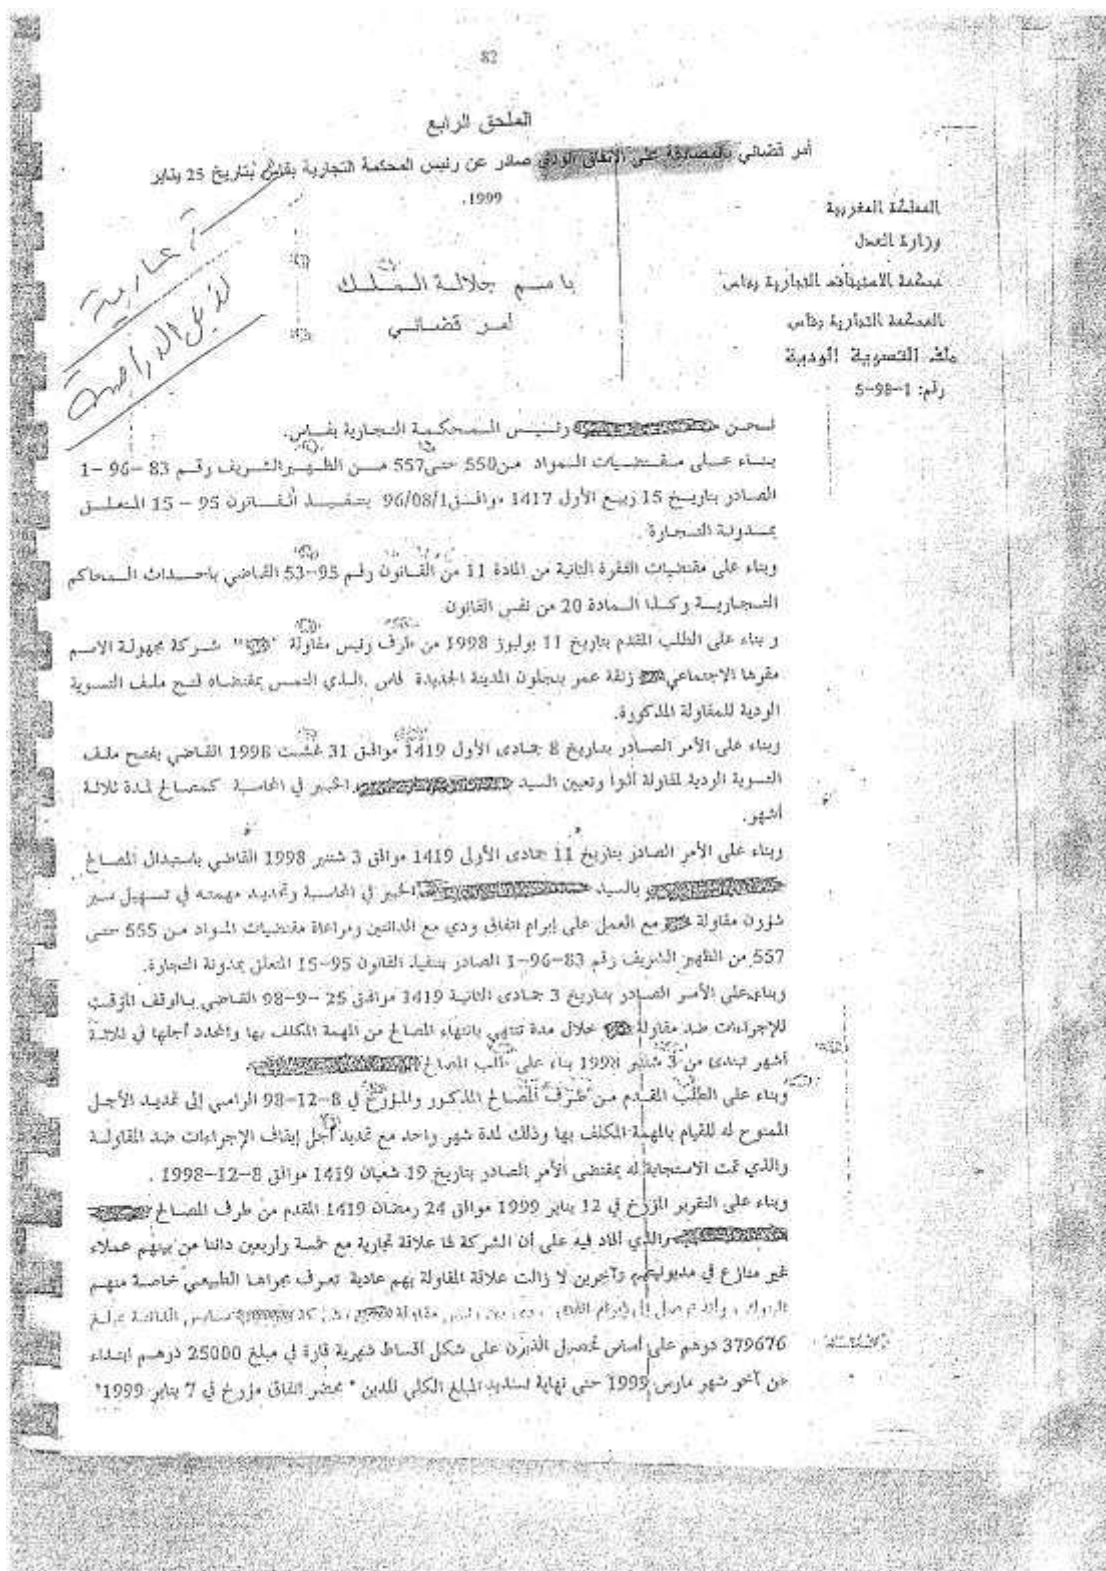 82
الملحق الرابع
أمر قضائي بالمصادقة على الاتفاق الودي صادر عن رئيس المحكمة التجارية بفاس بتاريخ 25 يناير
1999.
المملكة المغربية
وزارة العدل
محكمة الاستيناف التجارية بفاس
المحكمة التجارية بفاس
ملف التسوية الودية
رقم: 1-98-5
باسم جلالة الملك
أمر قضائي
نحن رئيس المحكمة التجارية بفاس.
بناء على مقتضيات المواد من550 حتى557 من الظهيرالشريف رقم 83 -96 -1
الصادر بتاريخ 15 ربيع الأول 1417 موافق96/08/1 بتنفيذ القانون 95 - 15 المتعلق
بمدونة التجارة.
وبناء على مقتضيات الفقرة الثانية من المادة 11 من القانون رقم 95-53 القاضي باحداث المحاكم
التجارية وكذا المادة 20 من نفس القانون
و بناء على الطلب المقدم بتاريخ 11 يوليوز 1998 من طرف رئيس مقاولة " " شركة مجهولة الاسم
مقرها الاجتماعي زنقة عمر بنجلون المدينة الجديدة فاس .الذي التمس بمقتضاه فتح ملف التسوية
الودية للمقاولة المذكورة.
وبناء على الأمر الصادر بتاريخ 8 جمادى الأول 1419 موافق 31 غشت 1998 القاضي بفتح ملف
التسوية الودية لمقاولة ألوا وتعيين السيد الخبير في المحاسبة كمصالح لمدة ثلاثة
أشهر.
وبناء على الأمر الصادر بتاريخ 11 جمادى الأولى 1419 موافق 3 شتنبر 1998 القاضي باستبدال المصالح
بالسيد الخبير في المحاسبة وتحديد مهمته في تسهيل سير
شؤون مقاولة مع العمل على إبرام اتفاق ودي مع الدائنين ومراعاة مقتضيات المواد من 555 حتى
557 من الظهير الشريف رقم 83-96-1 الصادر بتنفيذ القانون 95-15 المتعلق بمدونة التجارة.
وبناء على الأمر الصادر بتاريخ 3 جمادى الثانية 1419 موافق 25 -9-98 القاضي بالوقف المؤقت
للإجراءات ضد مقاولة خلال مدة تنتهي بانتهاء المصالح من المهمة المكلف بها والمحدد أجلها في ثلاثة
أشهر تبتدى من 3 شتنبر 1998 بناء على طلب المصالح
وبناء على الطلب المقدم من طرف المصالح المذكور والمؤرخ في 8-12-98 الرامي إلى تمديد الأجل
الممنوح له للقيام بالمهمة المكلف بها وذلك لمدة شهر واحد مع تمديد أجل إيقاف الإجراءات ضد المقاولة
والذي تمت الاستجابة له بمقتضى الأمر الصادر بتاريخ 19 شعبان 1419 موافق 8-12-1998 .
وبناء على التقرير المؤرخ في 12 يناير 1999 موافق 24 رمضان 1419 المقدم من طرف المصالح
والذي أفاد فيه على أن الشركة لها علاقة تجارية مع خمسة وأربعين دائنا من بينهم عملاء
غير منازع في مديونيتهم وآخرين لا زالت علاقة المقاولة بهم عادية تعرف مجراها الطبيعي خاصة منهم
379676 درهم على أساس تحصيل الديون على شكل أقساط شهرية قارة في مبلغ 25000 درهم ابتداء
من آخر شهر مارس 1999 حتى نهاية تسديد المبلغ الكلي للدين " محضر اتفاق مؤرخ في 7 يناير 1999"